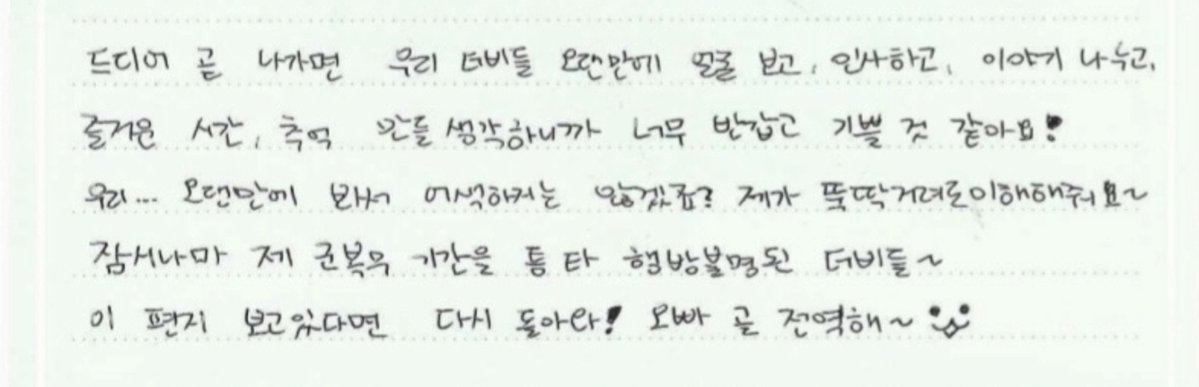 드디어 곧 나가면 우리 더비들 오랜만에 얼굴 보고, 인사하고, 이야기 나누고,
즐거운 시간, 추억 만들 생각하니까 너무 반갑고 기쁠 것 같아요!
우리... 오랜만에 봐서 어색하지는 않겠죠? 제가 뚝딱거려도 이해해줘요~
잠시나마 제 군복무 기간을 틈 타 행방불명된 더비들~
이 편지 보고있다면 다시 돌아와! 오빠 곧 전역해~